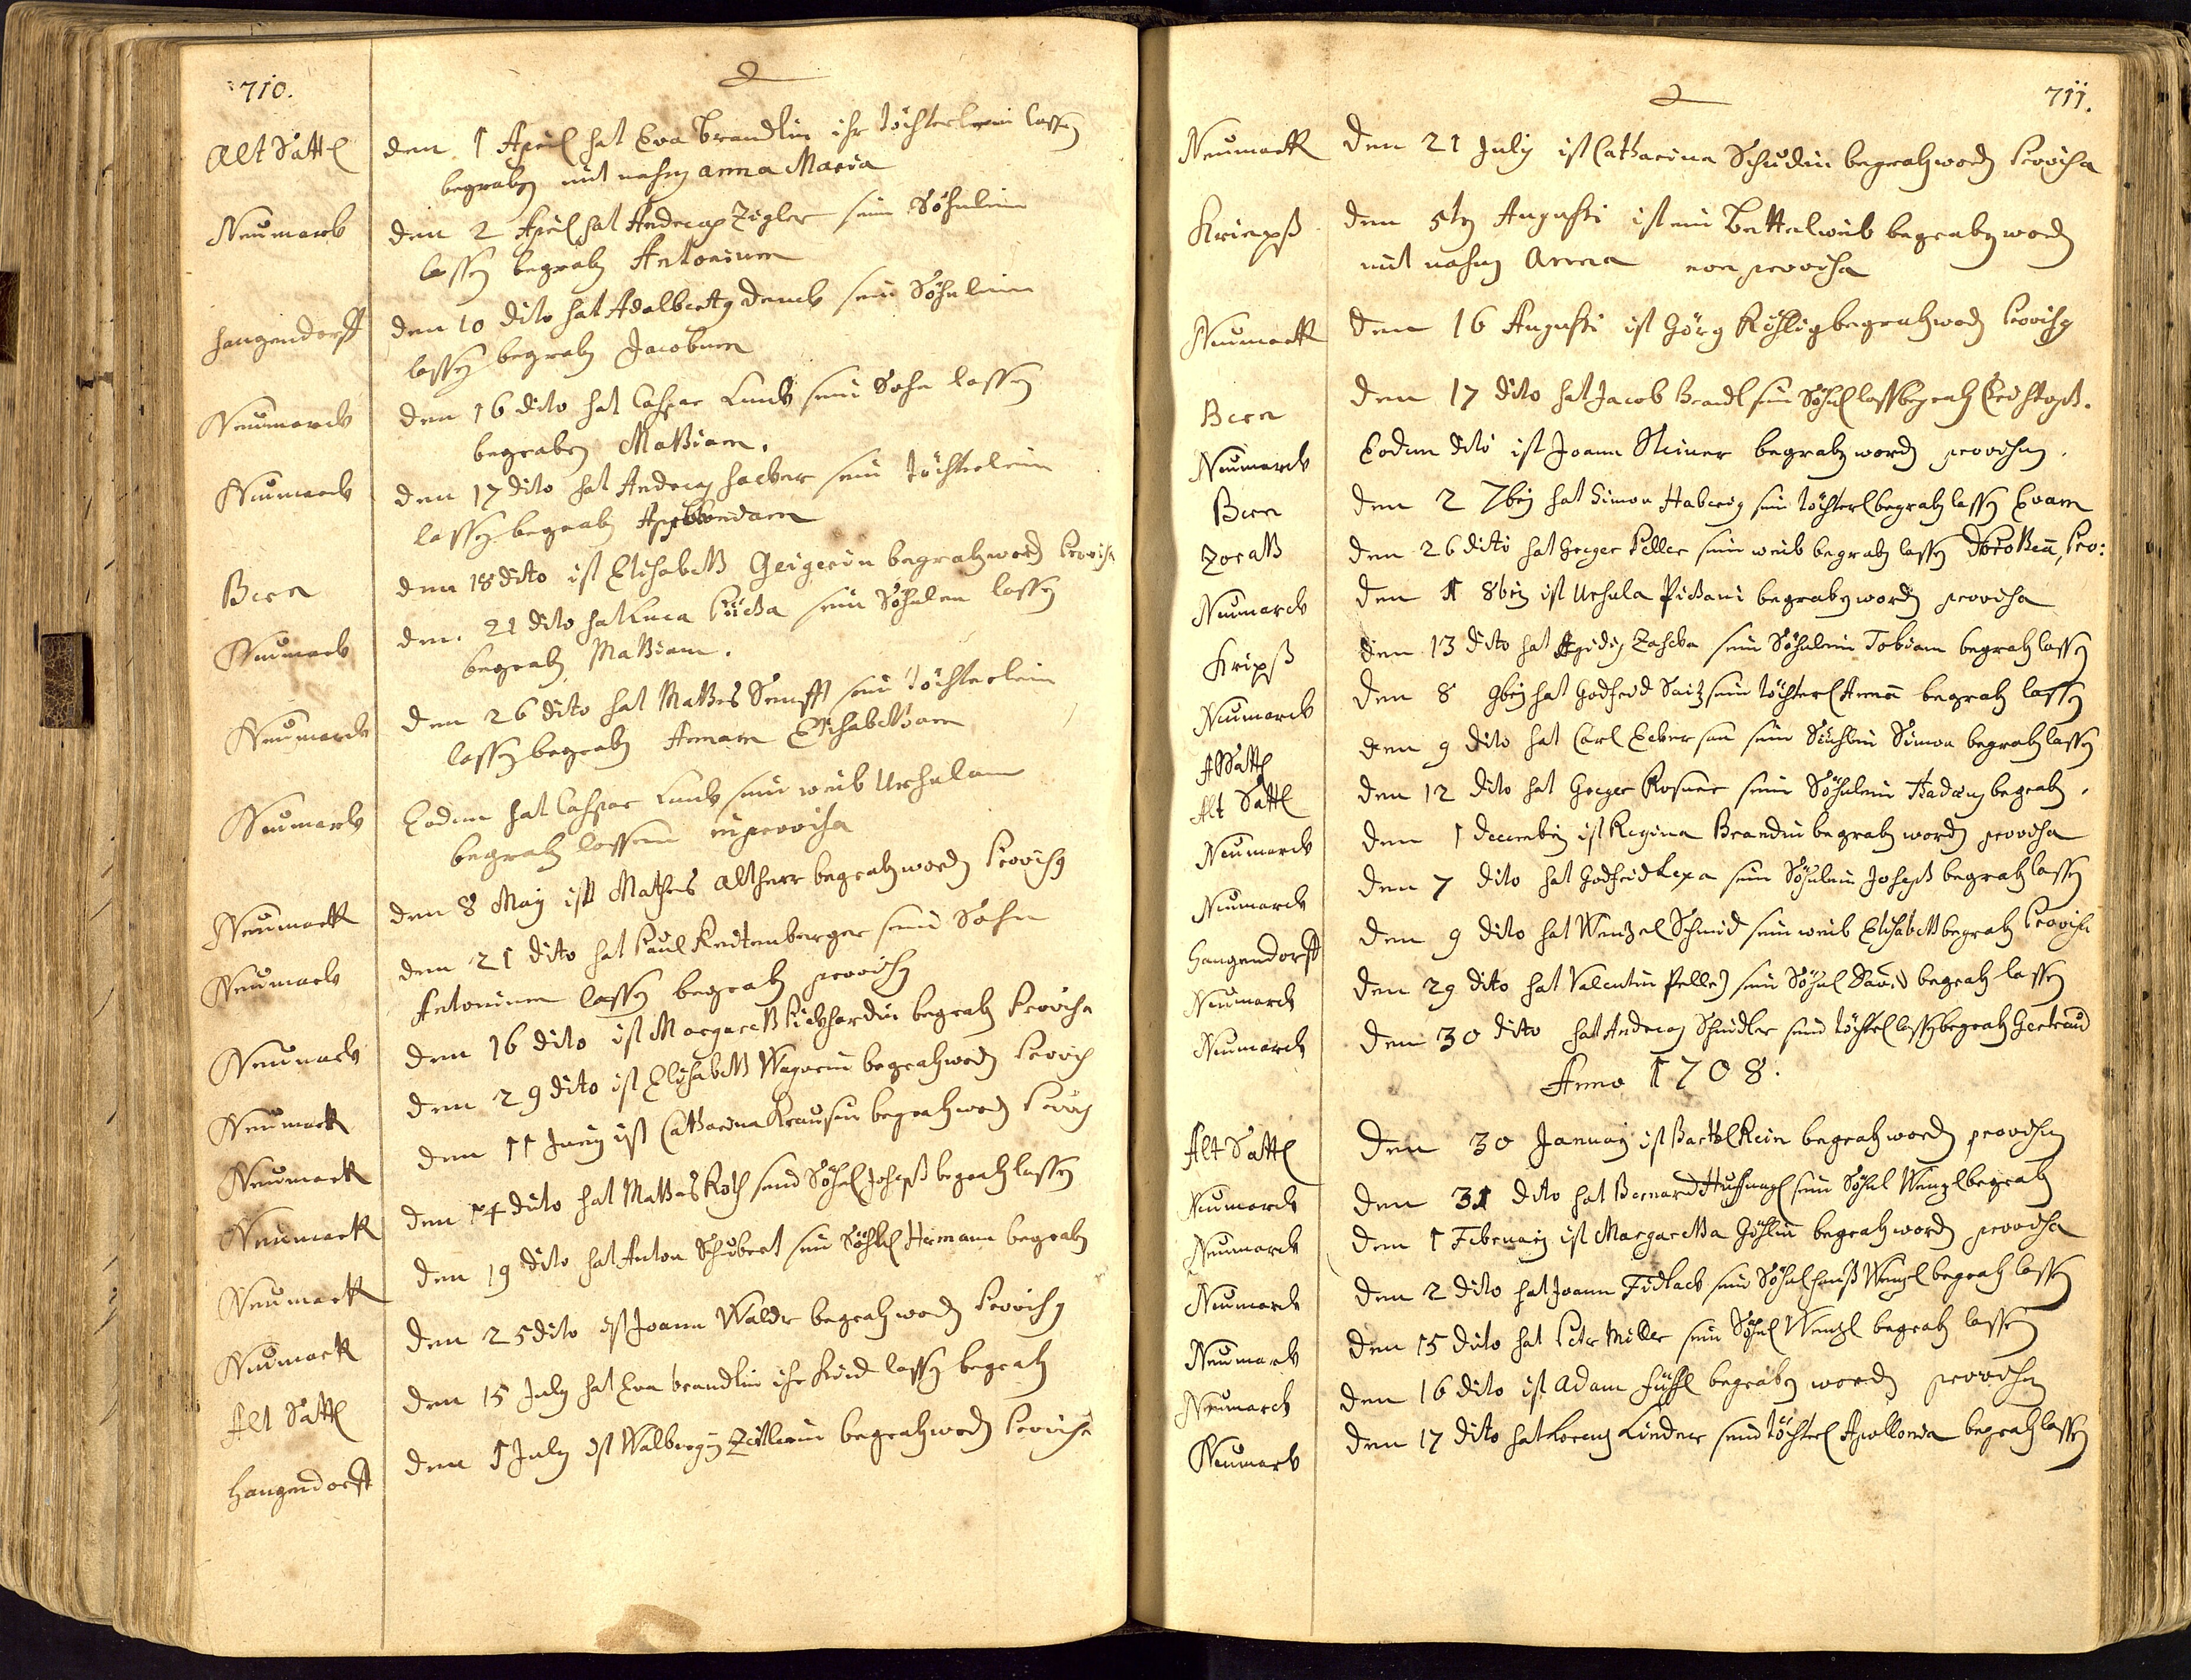 710.
Alt Sattl den 1 April hat Eva Brandlin ihr töchterlein lassen
begraben mit nahmen Anna Maria
Neumarck den 2 April hat Andreas Zigler sein Söhnlein
lassen begraben Antonium
Hangendorff den 10 dito hat Adalbertus sein Söhnlein
lassen begraben Jacobum
Neumarck den 16 dito hat Caspar sein Sohn lassen
begraben Mathiam.
Neumarck den 17 dito hat Andreas Hacker sein töchterlein
lassen begraben Apoloniam
Bern den 18 dito ist Elisabeth Geigerin begraben worden Provisa
Neumarck den 21 dito hat Luca sein Söhnlein lassen
begraben Mathiam.
Neumarck den 26 dito hat Mathes Senfft sein töchterlein
lassen begraben Annam Elisabetham
Neumarck Eodem hat Caspar sein weib Ursulam
begraben lassen improvisa
Neumarck den 8 May ist Mathes Altherr begraben worden Provisus
Neumarck den 21 dito hat Paul Reitenberger sein Sohn
Antonium lassen begraben provisus
Neumarck den 16 dito ist Margareth begraben Provisa
Neumarck den 29 dito ist Elisabeth Wagnerin begraben worden Provis
Neumarck den 11 Juny ist Catharina Krausin begraben worden Provis
Neumarck den 14 dito hat Mathes Roth sein Söhnl Joseph begraben lassen
Neumarck den 19 dito hat Anton Schubert sein Söhnl Hermann begraben
Neumarck den 25 dito ist Joann begraben worden Provisus
Alt Sattl den 15 July hat Eva Brandlin ihr Kind lassen begraben
Hangendorff den 1 July ist Walburgis begraben worden Provisa
711.
Neumarck den 21 July ist Catharina Schudin begraben worden Provisa
Kriepß den 5ten Augusti ist ein Bettelweib begraben worden
mit nahmen Anna non provisa
Neumarck den 16 Augusti ist Görg Röhlig begraben worden Provisus
Bern den 17 dito hat Jacob Brandl sein Söhnl lassen begraben Christoph.
Neumarck Eodem dito ist Joann Steiner begraben worden provisus.
Bern den 2 7bris hat Simon sein töchterl begraben lassen Evam
Zorath den 26 dito hat Georg Peller sein weib begraben lassen Dorothea, Pro:
Neumarck den 1 8bris ist Ursula begraben worden provisa
Kripß den 13 dito hat Egidius sein Söhnlein Tobiam begraben lassen
Neumarck den 8 9bris hat Godfrid Seitz sein töchterl Anna begraben lassen
A Sattl den 9 dito hat Carl sein Söhnlein Simon begraben lassen
Alt Sattl den 12 dito hat Georg Rosner sein Söhnlein Thadæus begraben.
Neumarck den 1 decembris ist Regina Brandin begraben worden provisa
Neumarck den 7 dito hat Godfrid Lexa sein Söhnlein Joseph begraben lassen
Hangendorff den 9 dito hat Wenzel Schmid sein weib Elisabeth begraben Provisa
Neumarck den 29 dito hat Valentin Peller sein Söhnl David begraben lassen
Neumarck den 30 dito hat Andreas Schindler sein töchterl lassen begraben Gertraud
Anno 1708.
Alt Sattl den 30 January ist Barthl Rein begraben worden provisus
Neumarck den 31 dito hat Bernard Hufnagl sein Söhnl Wenzl begraben
Neumarck den 1 February ist Margaretha begraben worden provisa
Neumarck den 2 dito hat Joann sein Söhnl Hanß Wenzel begraben lassen
Neumarck den 15 dito hat Peter Miller sein Söhnl Wenzl begraben lassen
Neumarck den 16 dito ist Adam begraben worden provisus
Neumarck den 17 dito hat Lorenz Lindner sein töchterl Apollonia begraben lassen